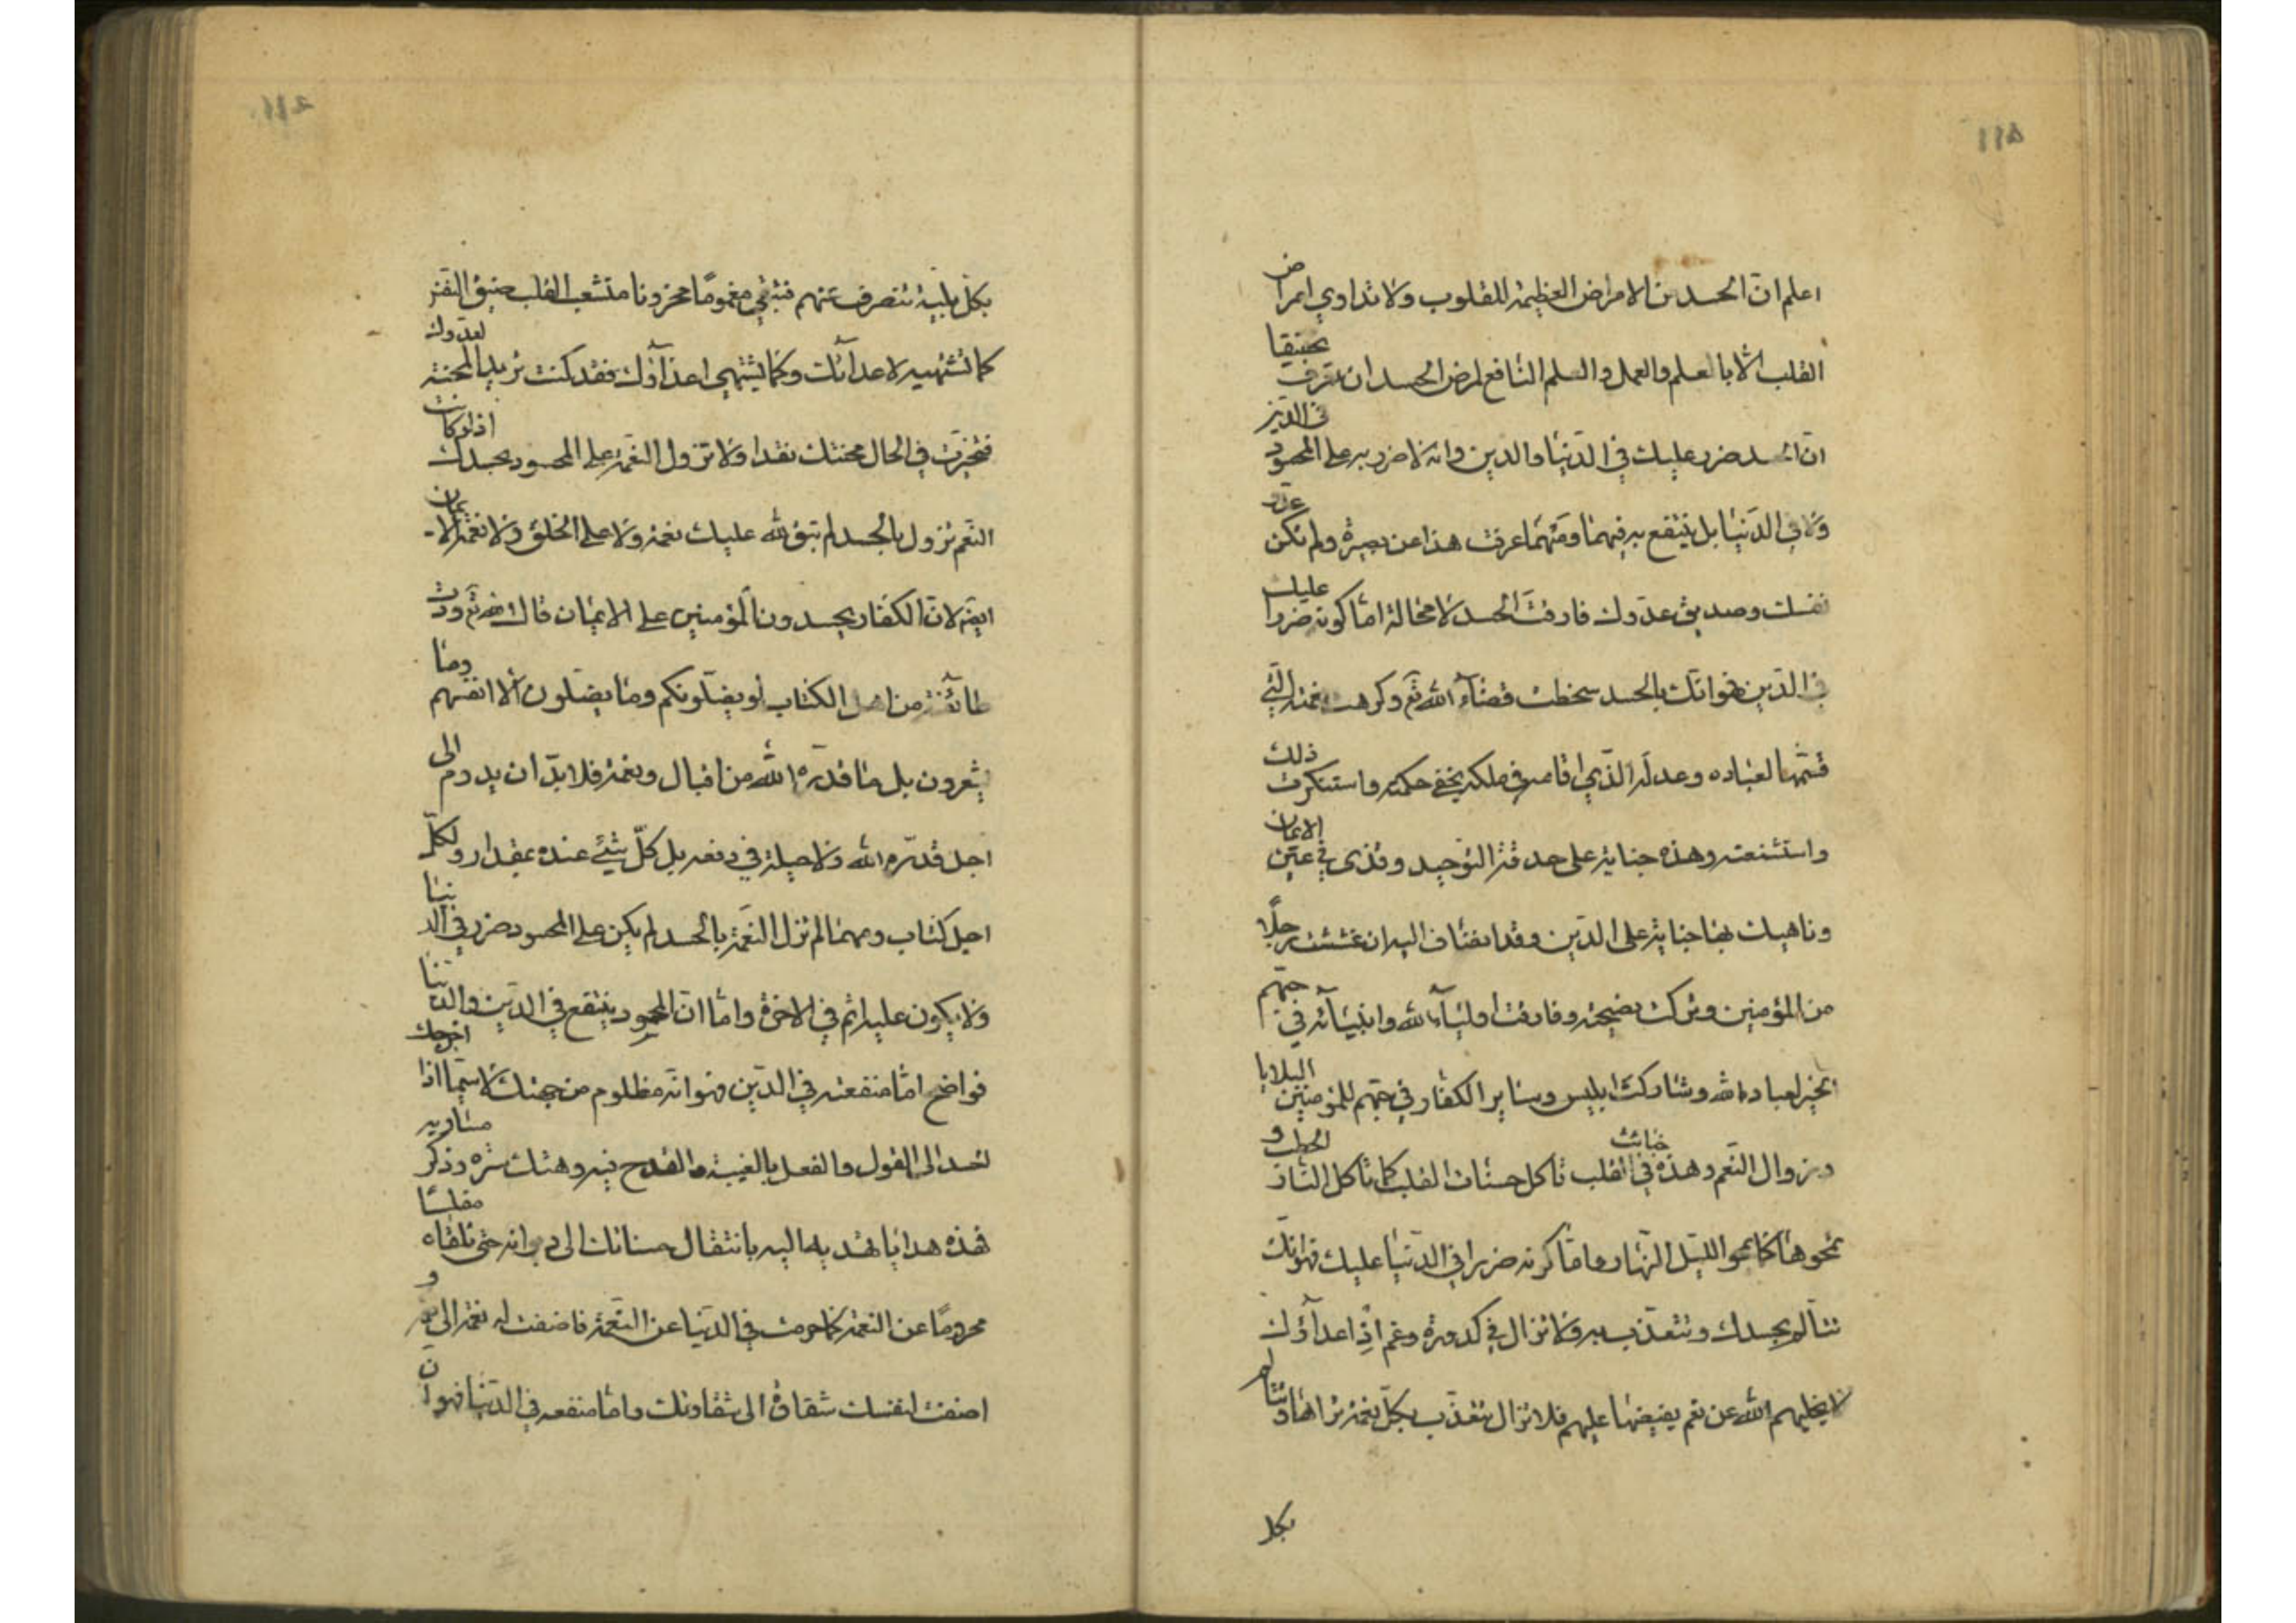 اعلم ان الحسد من الامراض العظيمة للقلوب ولا تداوي امراض
القلب الا بالعلم والعمل والعلم النافع لمرض الحسد ان تعرف تحقيقا
ان الحسد ضرر عليك في الدنيا والدين وانه لا ضرر به على المحسود في الدين
ولا في الدنيا بل ينتفع به فيهما ومهما عرفت هذا عن بصيرة ولم تكن عدو
نفسك وصديق عدوك فارقت الحسد لا محالة اما كونه ضررا عليك
في الدين فهو انك بالحسد سخطت قضاء الله تع وكرهت نعمته التي
قسمها لعباده وعدله الذي اقامه في ملكه بخفي حكمته واستنكرت ذلك
واستشنعته وهذه جناية على حدقة التوحيد وقذى في عين الايمان
وناهيك بها جناية على الدين وقد انضاف اليه ان غششت رجلا
من المؤمنين وتركت نصيحته وفارقت اولياء الله وانبيائه في حبهم
الخير لعباد الله وشاركت ابليس وساير الكفار في حبهم للمؤمنين البلايا
وزوال النعم وهذه خبائث في القلب تاكل حسنات القلب كما تاكل النار الحطب و
تمحوها كما يمحو الليل النهار واما كونه ضررا في الدنيا عليك فهو انك
تتالم بحسدك وتتعذب به ولا تزال في كدورة وغم اذ اعداؤك
لا يخليهم الله عن نعم يفيضها عليهم فلا تزال تتعذب بكل نعمة تراها وتتالم
بكل
بكل بلية تنصرف عنهم فتبقي مغموما محزونا متشعب القلب ضيق النفس
كما تشتهيه لاعدائك وكما يشتهي اعداؤك فقد كنت تريد المحنة لعدوك
فتنجزت في الحال محنتك نقدا ولا تزول النعمة على المحسود بحسدك اذ لو كانت
النعم تزول بالحسد لم تبق لله عليك نعمة ولا على الخلق ولا نعمة الايمان
ايضا لان الكفار يحسدون المؤمنين على الايمان قال الله تع ودت
طائفة من اهل الكتاب لو يضلونكم وما يضلون الا انفسهم وما
يشعرون بل ما قدره الله من اقبال ونعمة فلا بد ان يدوم الى
اجل قدره الله ولا حيلة في دفعه بل كل شئ عنده بمقدار ولكل
اجل كتاب ومهما لم تزل النعمة بالحسد لم يكن على المحسود ضرر في الدنيا
ولا يكون عليه اثم في الاخرة واما ان المحسود ينتفع في الدين والدنيا
فواضح اما منفعته في الدين فهو انه مظلوم من جهتك لا سيما اذا اخرجك
الحسد الى القول والفعل بالغيبة والقدح فيه وهتك ستره وذكر مساويه
فهذه هدايا تهديها اليه بانتقال حسناتك الى ديوانه حتى تلقاه مفلسا
محروما عن النعمة كما حرمت في الدنيا عن النعمة فاضفت له نعمة الى نعمة و
اضفت لنفسك شقاوة الى شقاوتك واما منفعه في الدنيا فهو ان